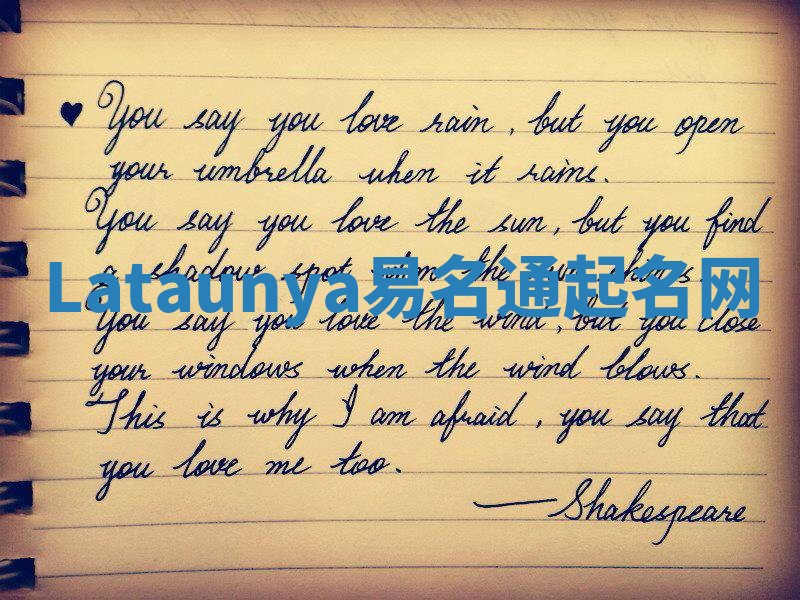 ♥ You say you love rain, but you open
your umbrella when it rains.
You say you love the sun, but you find
a shadow spot when the sun shines.
Lataunya易名通起名网
You say you love the wind, but you close
your windows when the wind blows.
This is why I am afraid, you say that
you love me too.
—Shakespeare